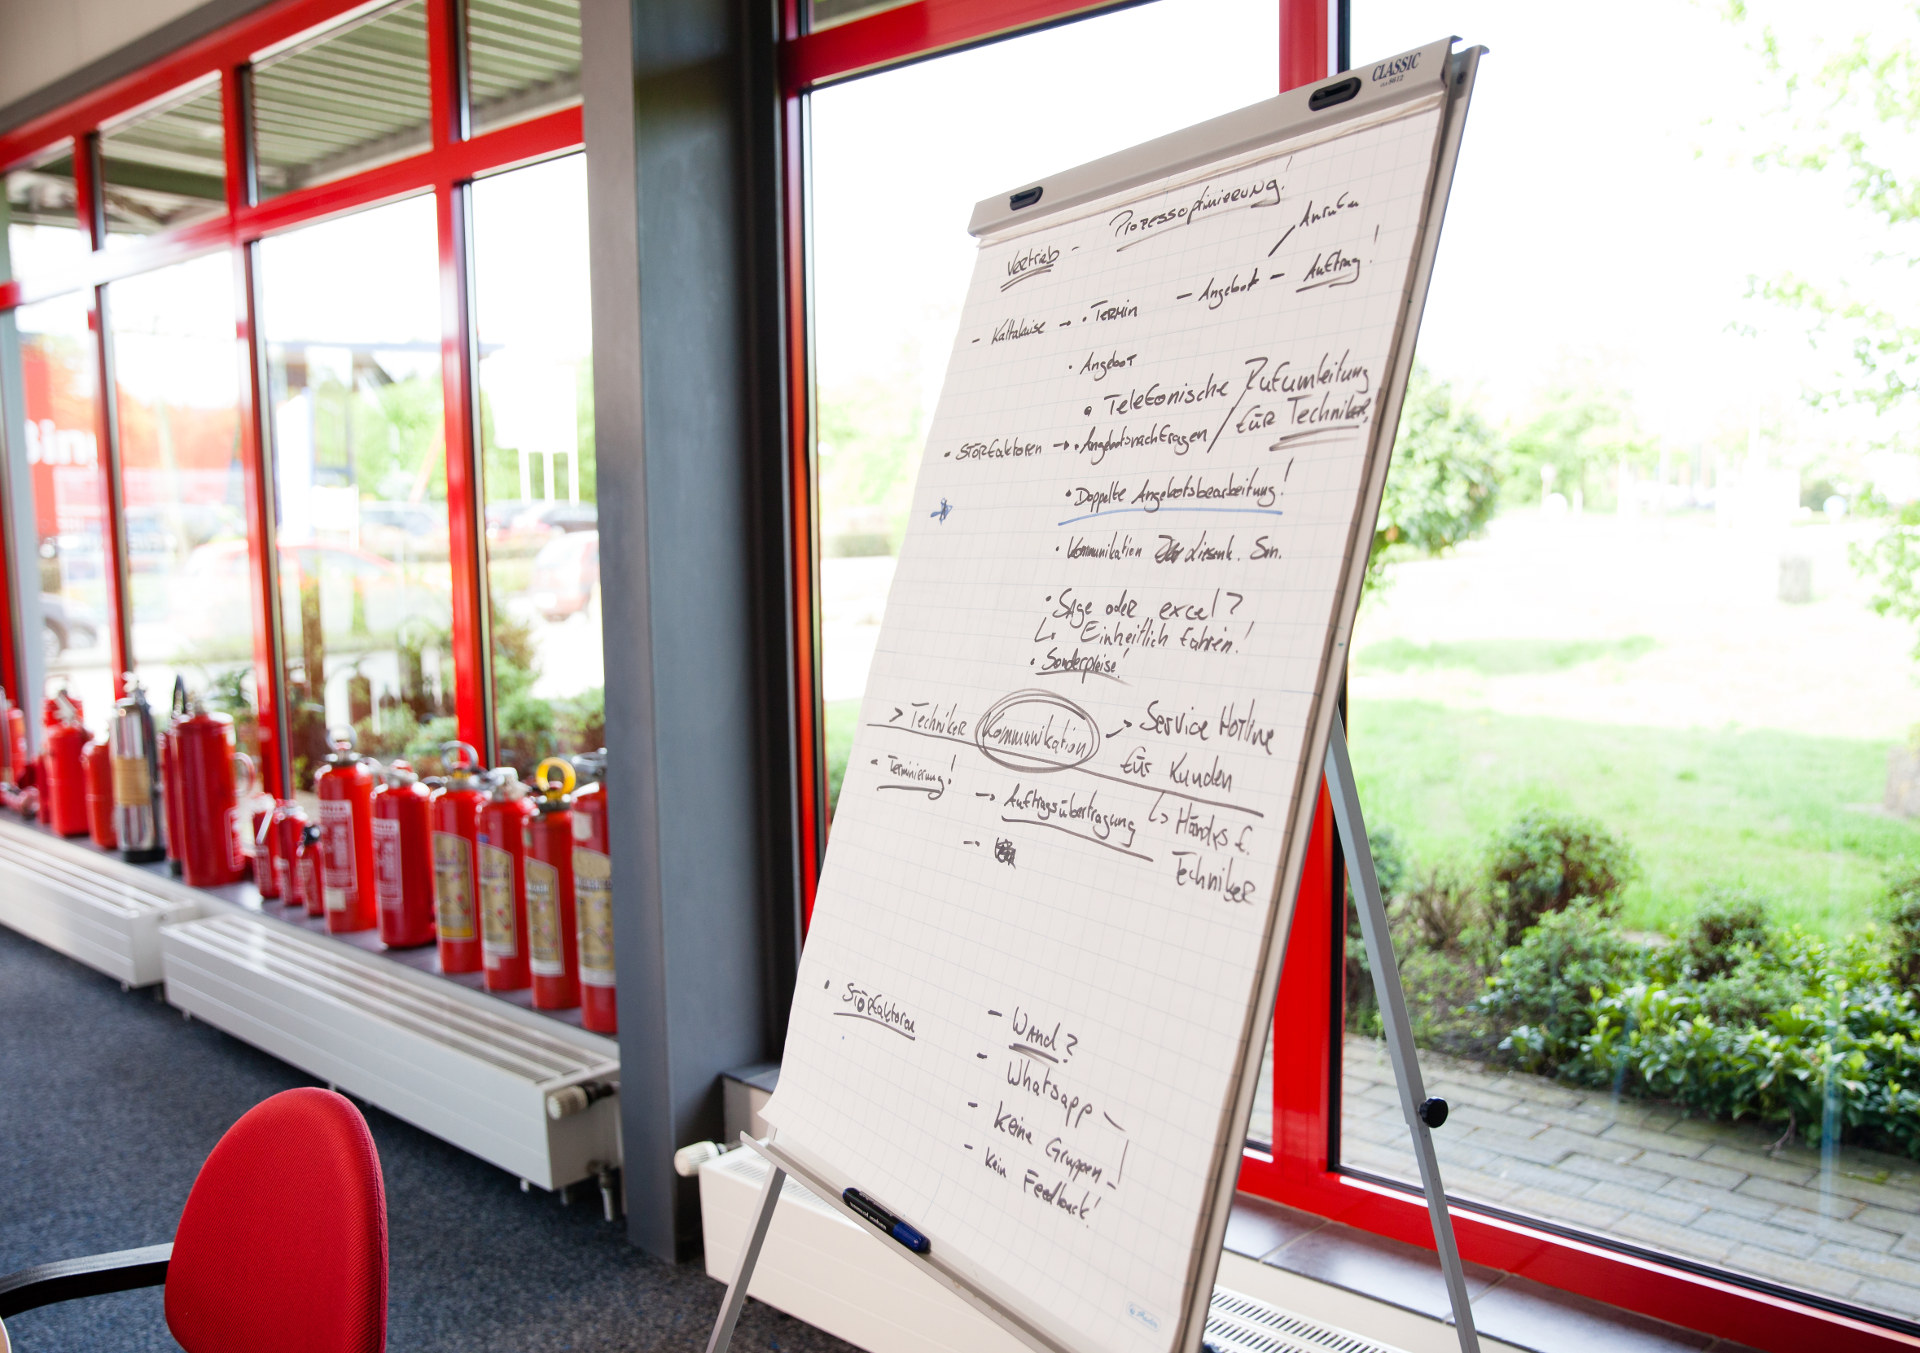 CLASSIC
Prozessoptimierung!
Vertrieb -
Anrufen
- Angebot - Auftrag!
- Kaltakquise → • Termin
• Angebot
• Telefonische Rufumleitung
für Techniker!
• Störfaktoren → • Angebotsnachfragen
• Doppelte Angebotsbearbeitung!
• Kommunikation
• Sage oder excel?
↳ Einheitlich fahren!
• Sonderpreise!
> Techniker Kommunikation → Service Hotline
für Kunden
• Terminierung!
→ Auftragsübertragung
↳ Handys f.
Techniker
• Störfaktoren
- Wand?
- Whatsapp
- Keine Gruppen
- Kein Feedback!